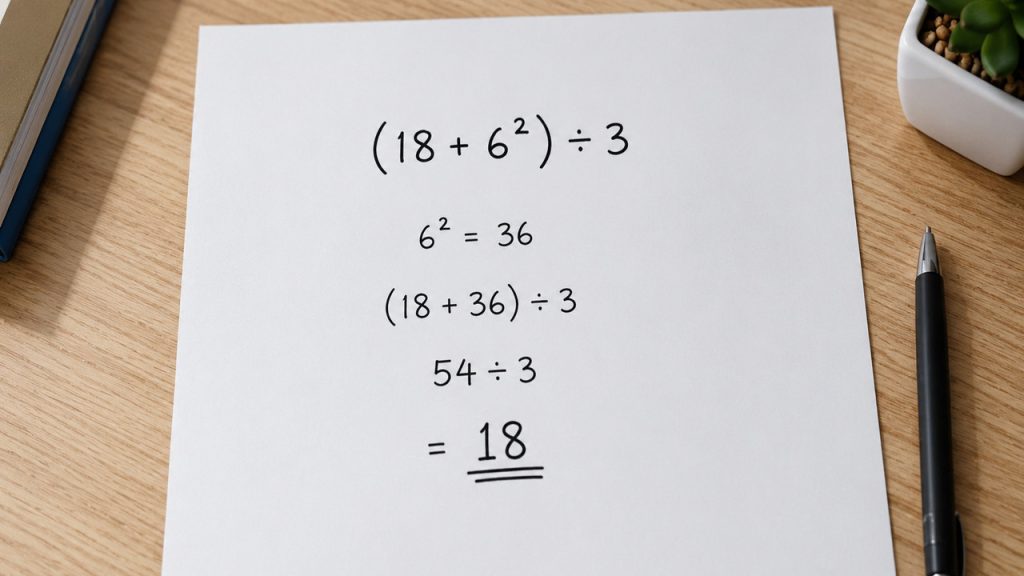 (18 + 6²) ÷ 3
6² = 36
(18 + 36) ÷ 3
54 ÷ 3
= 18